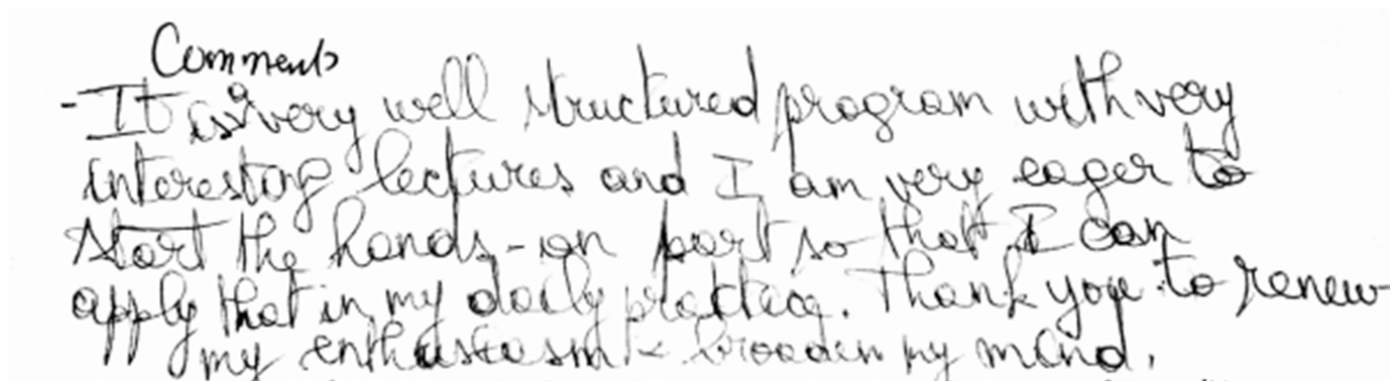 Comments
- It is a very well structured program with very
interesting lectures and I am very eager to
start the hands-on part so that I can
apply that in my daily practice. Thank you to renew
my enthusiasm & broaden my mind.